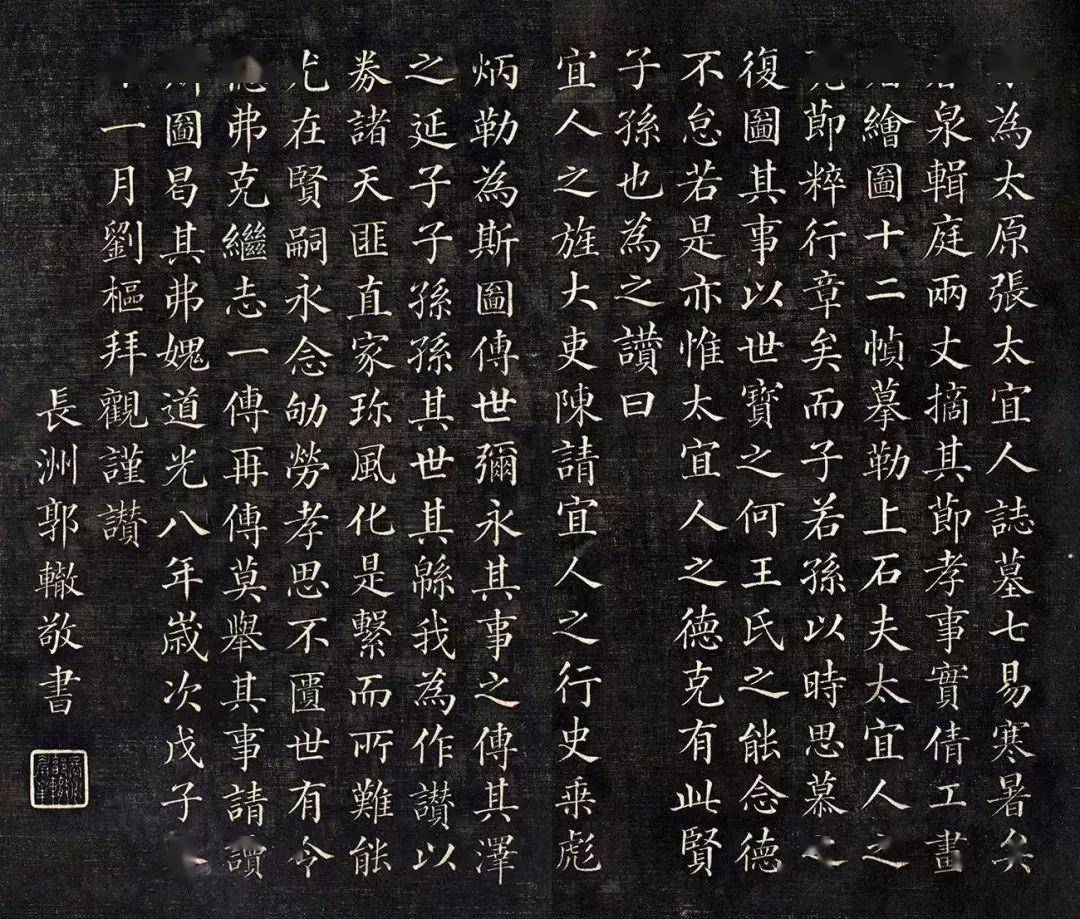 為太原張太宜人誌墓七易寒暑矣
泉輯庭兩丈摘其節孝事實倩工畫
繪圖十二幀摹勒上石夫太宜人之
節粹行章矣而子若孫以時思慕之
復圖其事以世寶之何王氏之能念德
不怠若是亦惟太宜人之德克有此賢
子孫也為之讚曰
宜人之旌大吏陳請宜人之行史乘彪
炳勒為斯圖傳世彌永其事之傳其澤
之延子子孫孫其世其緜我為作讚以
券諸天匪直家珍風化是繫而所難能
尤在賢嗣永念劬勞孝思不匱世有令
德弗克繼志一傳再傳莫舉其事請讀
斯圖曷其弗媿道光八年歲次戊子
十一月劉樞拜觀謹讚
長洲郭轍敬書